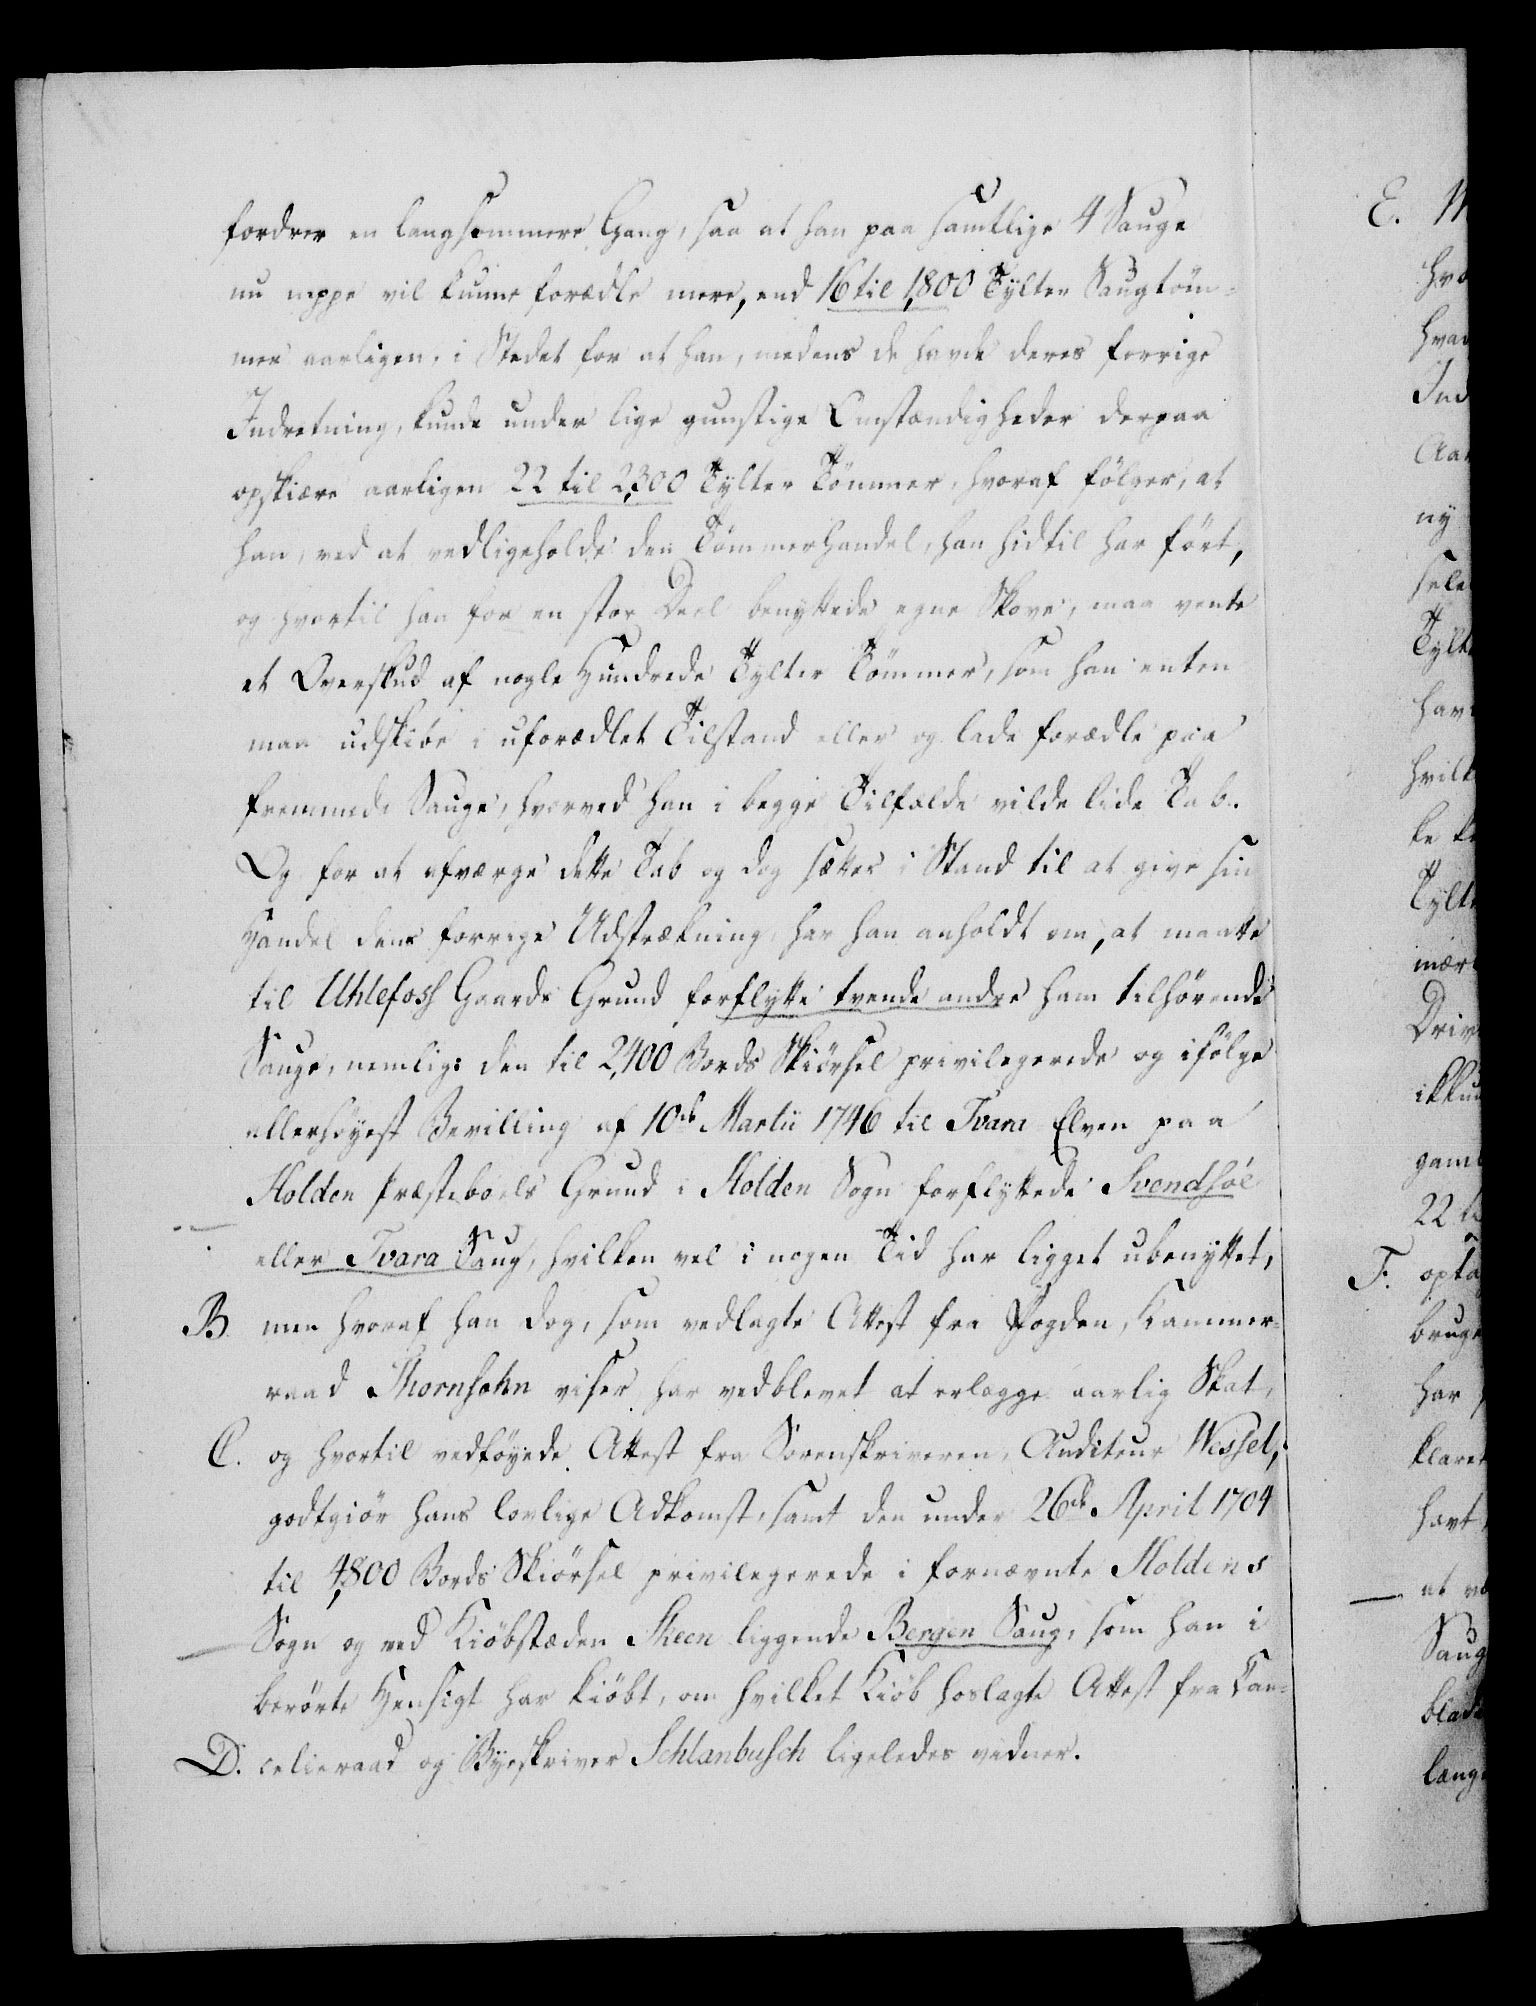 fordrer en langsommere Gang, saa at han paa samtlige 4 Sauge
nu neppe vil kunne forædle mere, end 16 til 1,800 Tylter Saugtöm-
mer aarligen, i Stedet for at han, medens de havde deres forrige
Indretning, kunde under lige gunstige Omstændigheder derpaa
opskiære aarligen 22 til 2,300 Tylter Tömmer, hvoraf fölger, at
han, ved at vedligeholde den Tömmerhandel, han hidtil har fört,
og hvortil han for en stor Deel benyttede egne Skove, maa vente
et Overskud af nogle Hundrede Tylter Tömmer, som han enten
maa udskibe i uforædlet Tilstand eller og lade forædle paa
fremmede Sauge, hvorved han i begge Tilfælde vilde lide Tab.
Og for at afværge dette Tab og dog sættes i Stand til at give sin
Handel dens forrige Udstrækning, har han anholdt om, at maatte
til Uhlefoss Gaards Grund forflytte tvende andre ham tilhörende
Sauge, nemlig: den til 2,400 Bords Skiörsel privilegerede og ifölge
allerhöyest Bevilling af 10de Martii 1746 til Tvara Elven paa
Holden Præsteboels Grund i Holden Sogn forflyttede Svendsöe
eller Tvara Saug, hvilken vel i nogen Tid har ligget ubenyttet,
B. men hvoraf han dog, som vedlagte Attest fra Fogden, Kammer-
raad Thornsohn viser har vedblevet at erlægge aarlig Skat,
C. og hvortil vedföyede Attest fra Sorenskriveren, Auditeur Wessel,
godtgiör hans lovlige Adkomst, samt den under 26de April 1704
til 4,800 Bords Skiörsel privilegerede i fornævnte Holdens
Sogn og ved Kiöbstæden Skeen liggende Bergen Saug, som han i
berörte Hensigt har kiöbt, om hvilket Kiöb hoslagte Attest fra Can-
D. celieraad og Byeskriver Schlanbusch ligeledes vidner.
E.
Ind
ny
22
F.
har
at
Saug